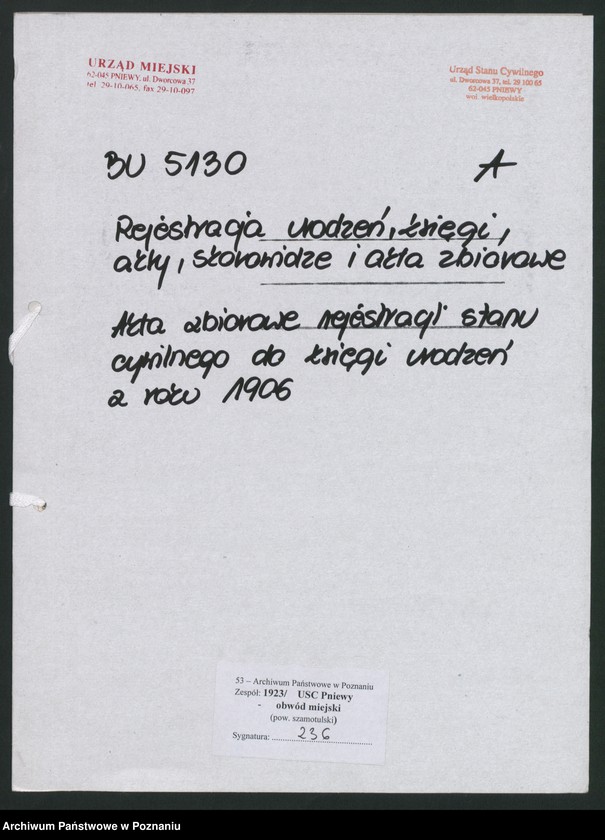 URZĄD MIEJSKI
62-045 PNIEWY, ul. Dworcowa 37
tel. 29-10-065, fax 29-10-097
Urząd Stanu Cywilnego
ul. Dworcowa 37, tel. 29 100 65
62-045 PNIEWY
woj. wielkopolskie
BU 5130
A
Rejestracja urodzeń, księgi,
akty, skorowidze i akta zbiorowe
Akta zbiorowe rejestracji stanu
cywilnego do księgi urodzeń
z roku 1906
53 – Archiwum Państwowe w Poznaniu
Zespół: 1923/ USC Pniewy
- obwód miejski
(pow. szamotulski)
Sygnatura: 236
Archiwum Państwowe w Poznaniu